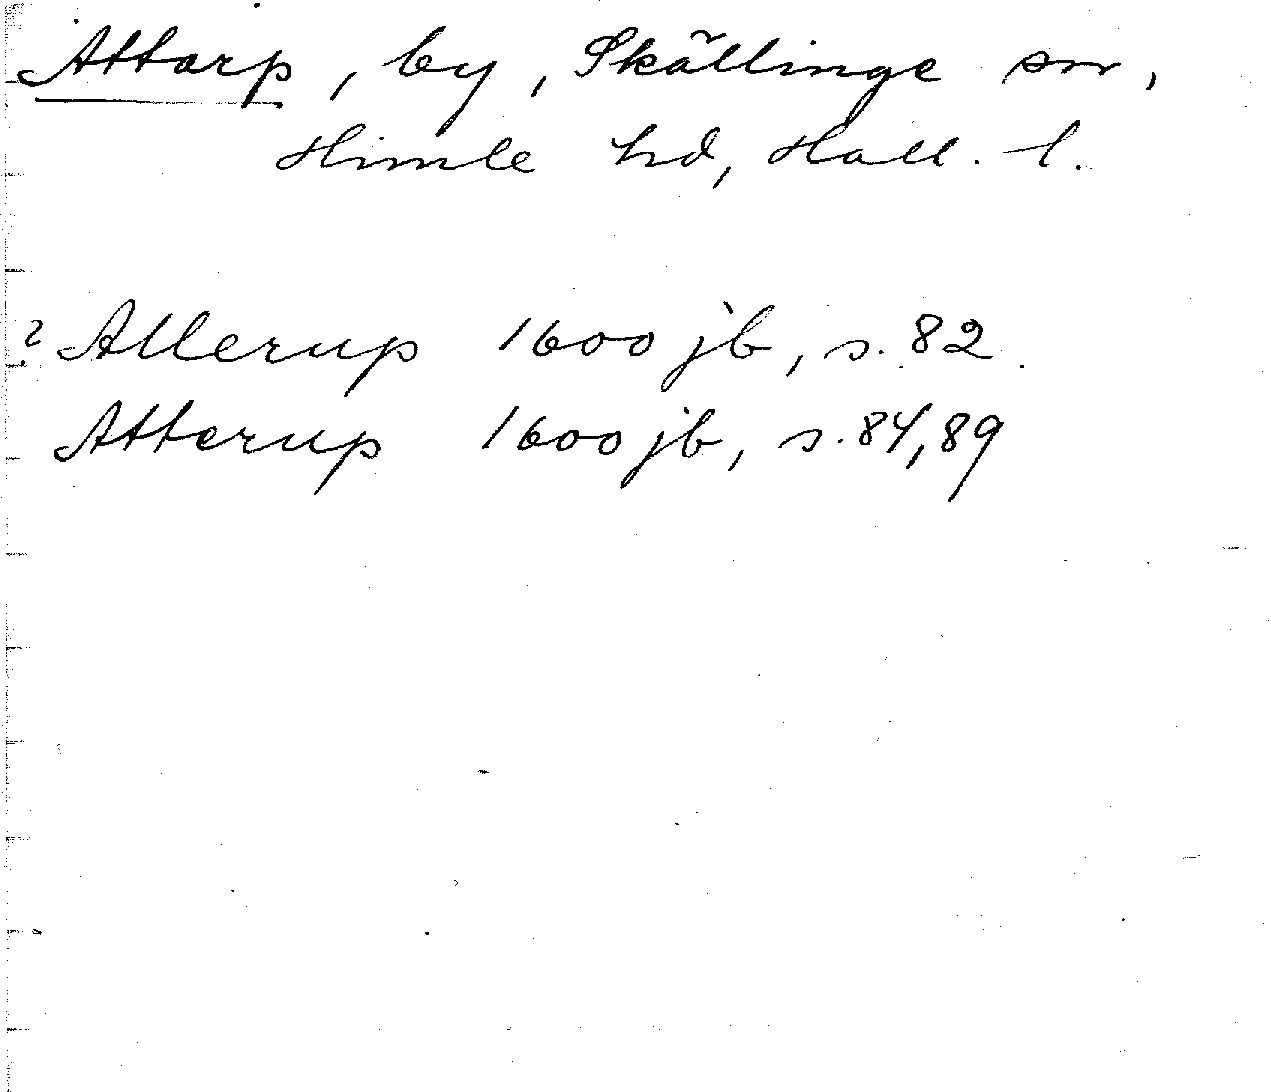 Attarp, by, Skällinge sn,
Himle hd, Hall. l.
? Allerup 1600 jb, s. 82.
Atterup 1600 jb, s. 84, 89